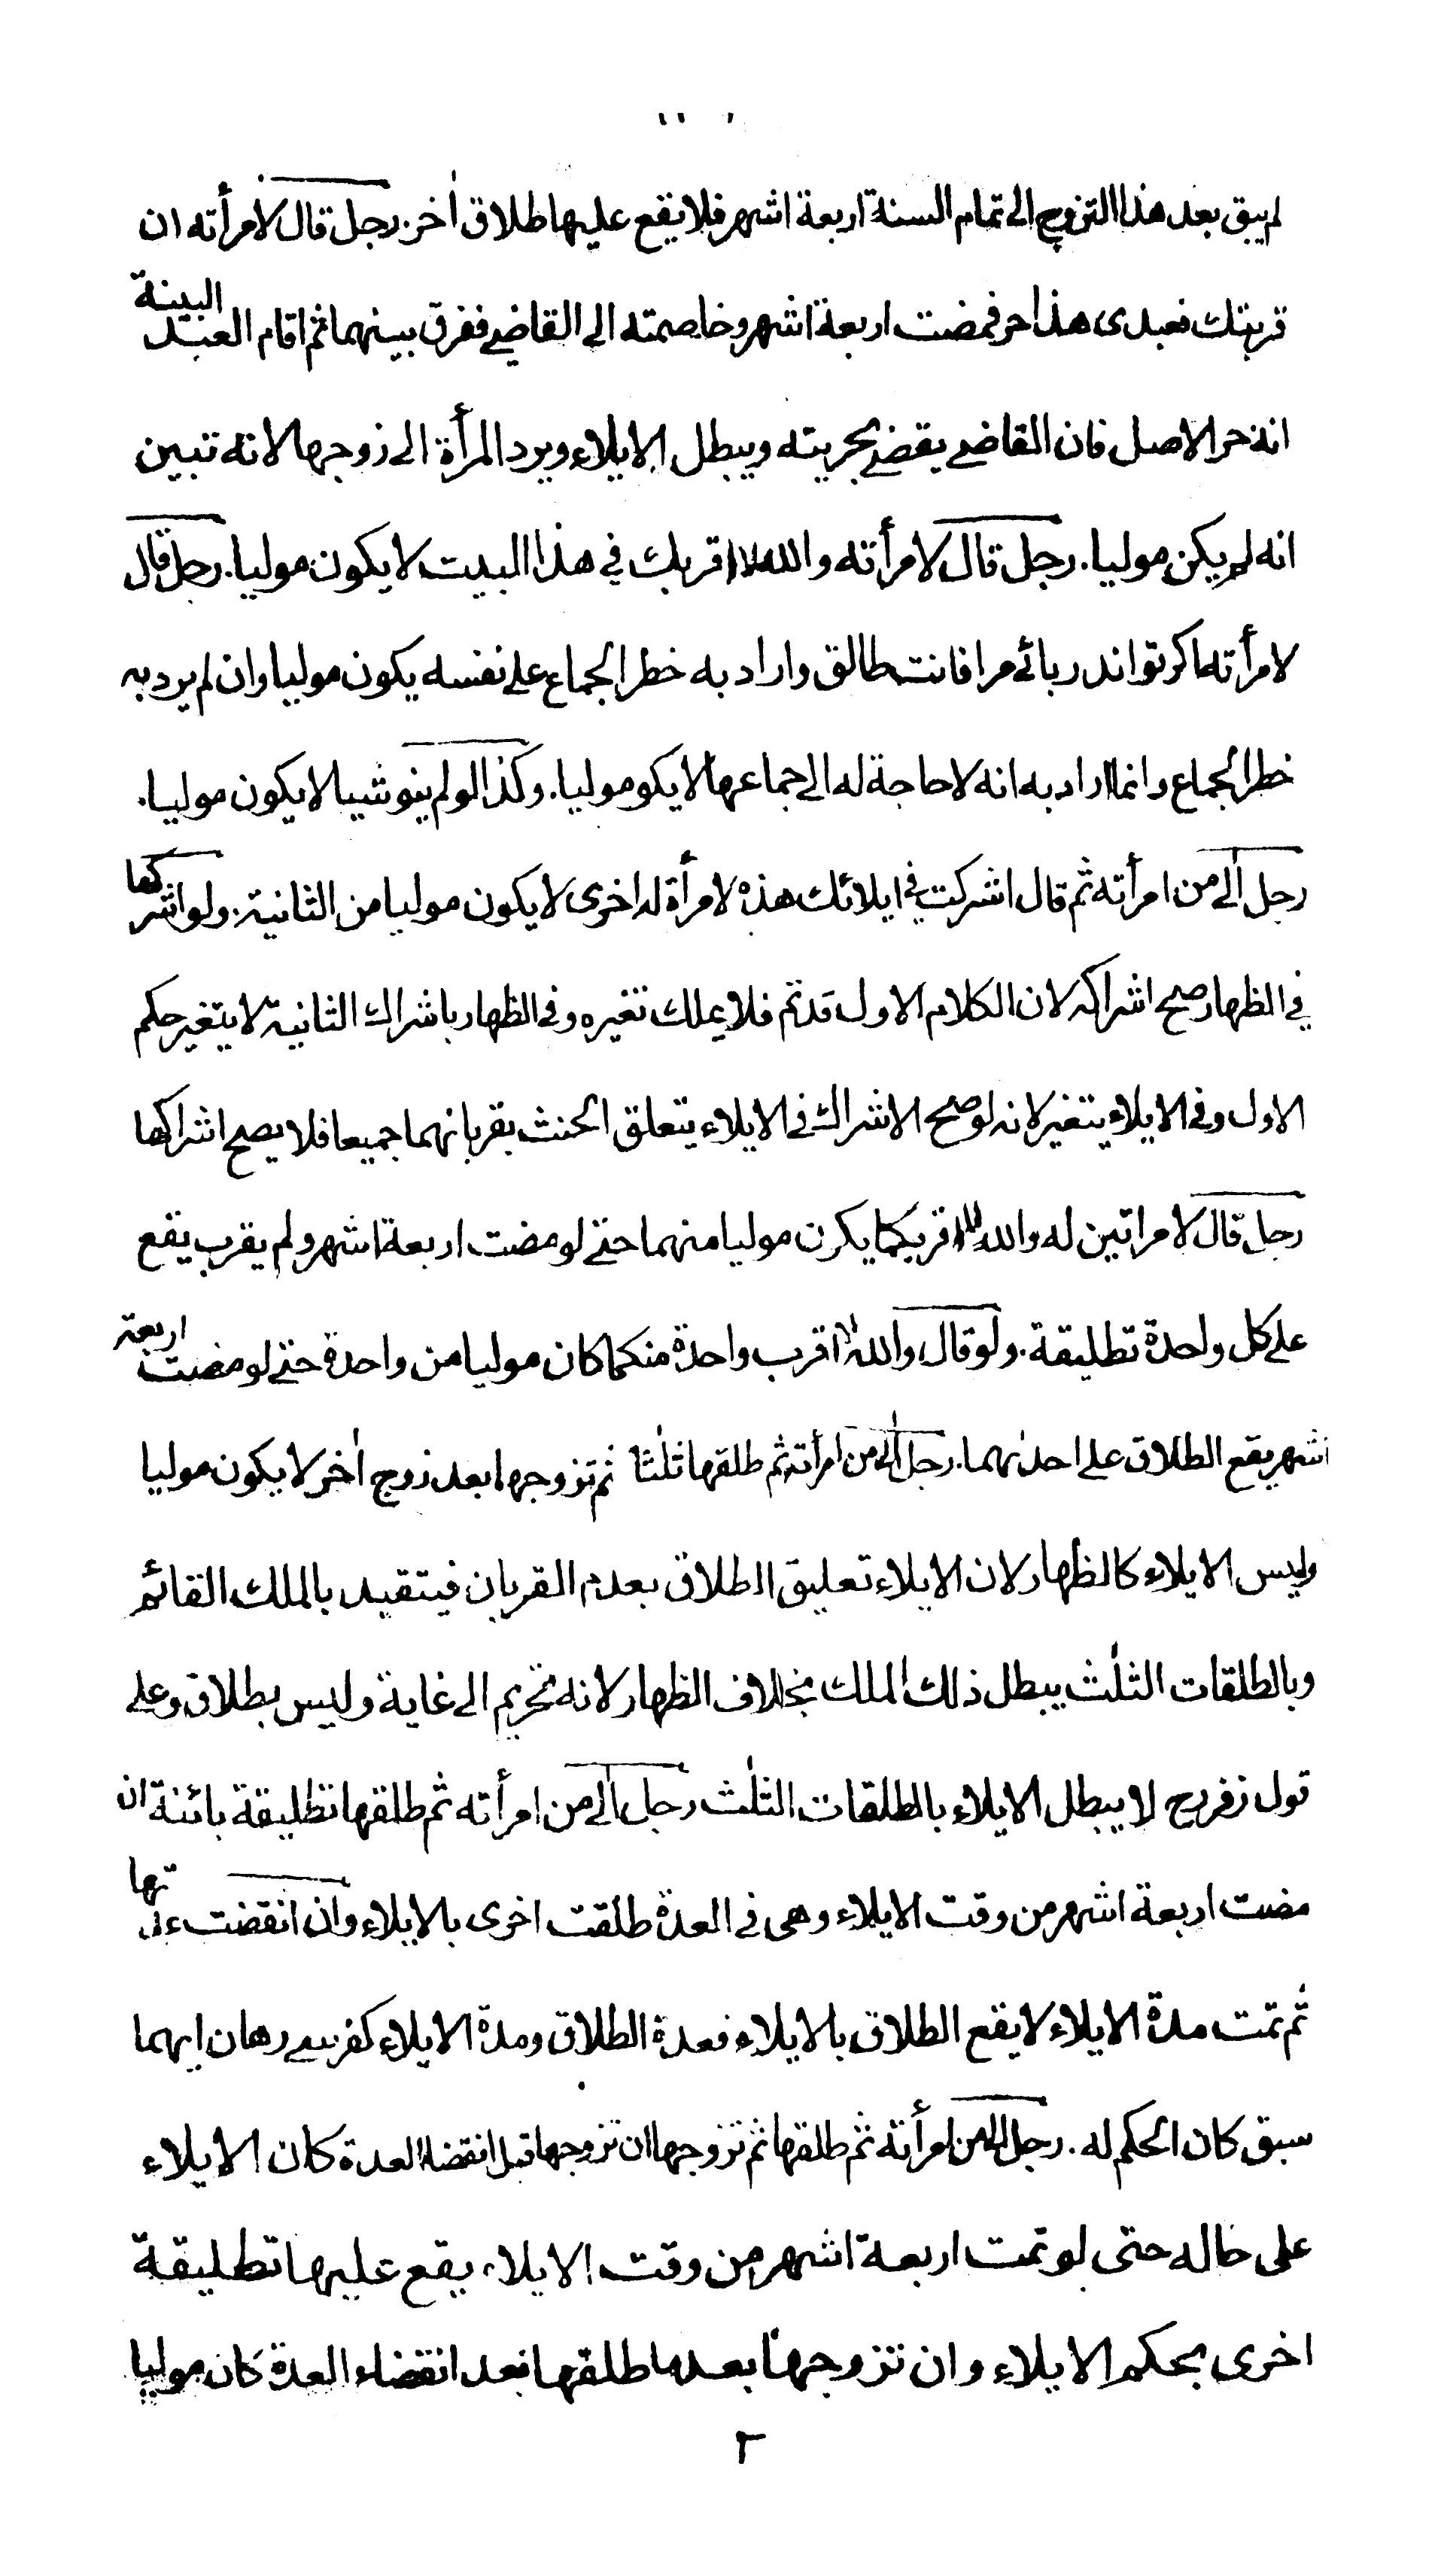 لم يبق بعد هذا التزوج الى تمام السنة اربعة اشهر فلا يقع عليها طلاق اٰخر. رجل قال لامرأته ان
قربتك فعبدى هذا حر فمضت اربعة اشهر وخاصمته الى القاضى ففرق بينهما ثم اقام العبد البينة
انه حر الاصل فان القاضى يقضى بحريته ويبطل الايلاء ويرد المرأة الى زوجها لانه تبين
انه لم يكن موليا. رجل قال لامرأته والله لا اقربك فى هذا البيت لا يكون موليا. رجل قال
لامرأته اكر تو اندر بائے مرا فانت طالق واراد به خطر الجماع على نفسه يكون موليا وان لم يرد به
خطر الجماع وانما اراد به انه لا حاجة له الى جماعها لا يكو موليا. وكذا لو لم ينو شيا لا يكون موليا.
رجل اٰلى من امرأته ثم قال اشركت فى ايلائك هذه لامرأة له اخرى لا يكون موليا من الثانية. ولو اشركها
فى الظهار صح اشراكه لان الكلام الاول قد تم فلا يملك تغيره وفى الظهار باشراك الثانية لا يتغير حكم
الاول وفى الايلاء يتغير لانه لو صح الاشراك فى الايلاء يتعلق الحنث بقربانهما جميعا فلا يصح اشراكها
رجل قال لامراتين له والله لا اقربكما يكون موليا منهما حتى لو مضت اربعة اشهر ولم يقرب يقع
على كل واحدة تطليقة. ولو قال والله لا اقرب واحدة منكما كان موليا من واحدة حتى لو مضت اربعة
اشهر يقع الطلاق على احدٰهما. رجل اٰلى من امرأته ثم طلقها ثلٰثا ثم تزوجها بعد زوج اٰخر لا يكون موليا
وليس الايلاء كالظهار لان الايلاء تعليق الطلاق بعدم القربان فيتقيد بالملك القائم
وبالطلقات الثلٰث يبطل ذلك الملك بخلاف الظهار لانه تحريم الى غاية وليس بطلاق وعلى
قول زفر رح لا يبطل الايلاء بالطلقات الثلٰث رجل اٰلى من امرأته ثم طلقها تطليقة بائنة ان
مضت اربعة اشهر من وقت الايلاء وهى فى العدة طلقت اخرى بالايلاء وان انقضت عدتها
ثم تمت مدة الايلاء لا يقع الطلاق بالايلاء فعدة الطلاق ومدة الايلاء كفرسى رهان ايهما
سبق كان الحكم له. رجل اٰلى من امرأته ثم طلقها ثم تزوجها ان تزوجها قبل انقضاء العدة كان الايلاء
على حاله حتى لو تمت اربعة اشهر من وقت الايلاء يقع عليها تطليقة
اخرى بحكم الايلاء وان تزوجها بعدما طلقها فبعد انقضاء العدة كان موليا
٢